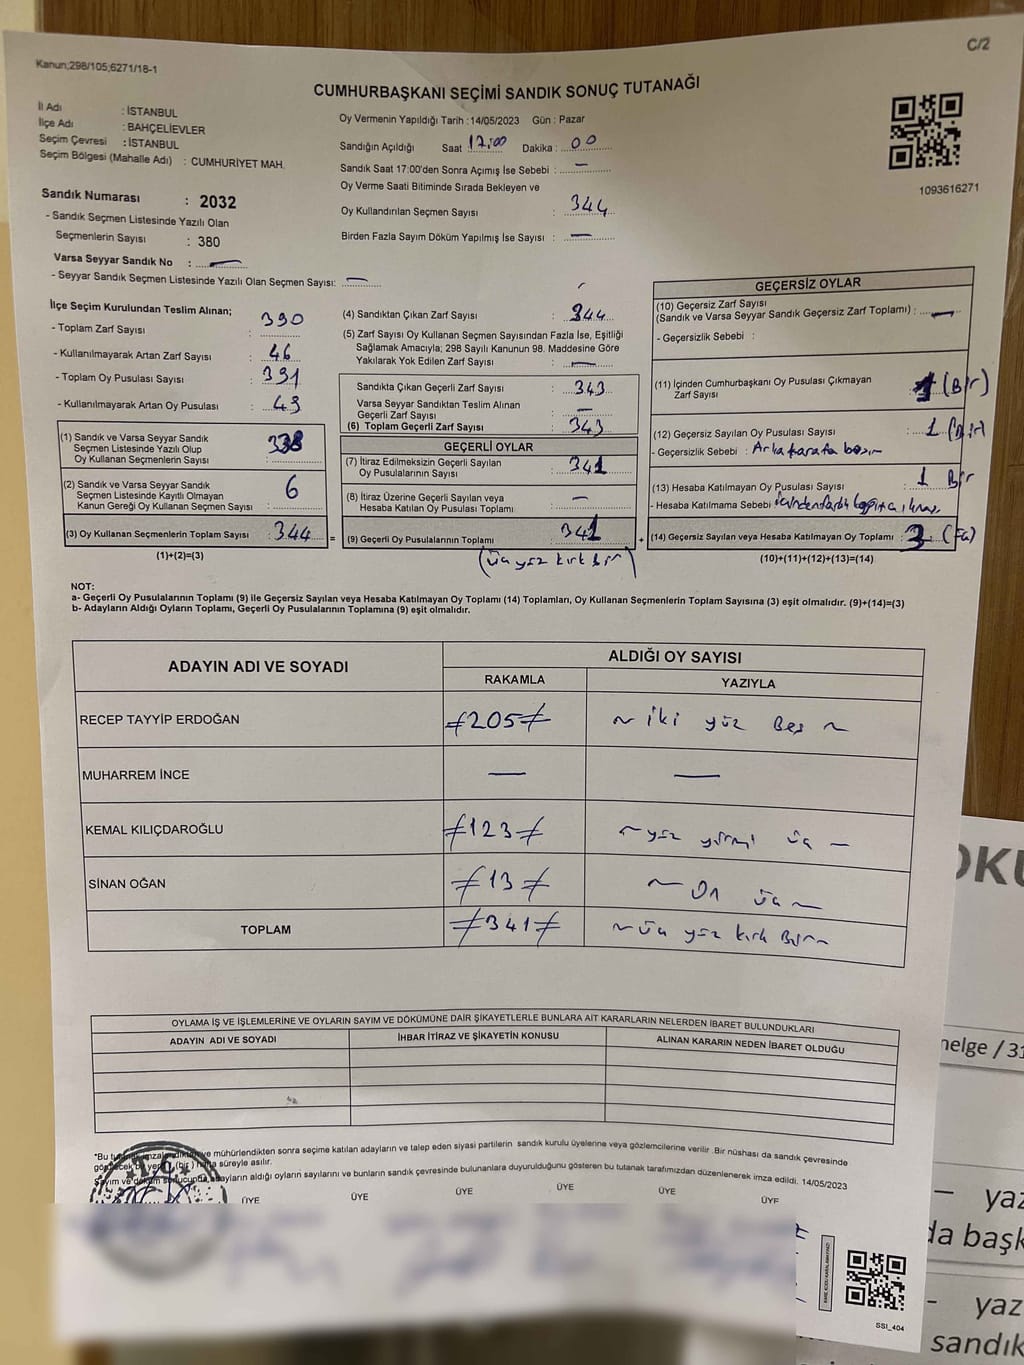 C/2
Kanun;298/105;6271/18-1
CUMHURBAŞKANI SEÇİMİ SANDIK SONUÇ TUTANAĞI
İl Adı : İSTANBUL
İlçe Adı : BAHÇELİEVLER
Seçim Çevresi : İSTANBUL
Seçim Bölgesi (Mahalle Adı) : CUMHURİYET MAH.
Sandık Numarası : 2032
- Sandık Seçmen Listesinde Yazılı Olan
Seçmenlerin Sayısı : 380
Varsa Seyyar Sandık No : —
- Seyyar Sandık Seçmen Listesinde Yazılı Olan Seçmen Sayısı: —
Oy Vermenin Yapıldığı Tarih :14/05/2023 Gün : Pazar
Sandığın Açıldığı Saat 17:00 Dakika : 00
Sandık Saat 17:00'den Sonra Açımış İse Sebebi : —
Oy Verme Saati Bitiminde Sırada Bekleyen ve
Oy Kullandırılan Seçmen Sayısı : 344
Birden Fazla Sayım Döküm Yapılmış İse Sayısı : —
1093616271
İlçe Seçim Kurulundan Teslim Alınan;
- Toplam Zarf Sayısı : 390
- Kullanılmayarak Artan Zarf Sayısı : 46
- Toplam Oy Pusulası Sayısı : 391
- Kullanılmayarak Artan Oy Pusulası : 43
(1) Sandık ve Varsa Seyyar Sandık
Seçmen Listesinde Yazılı Olup
Oy Kullanan Seçmenlerin Sayısı : 338
(2) Sandık ve Varsa Seyyar Sandık
Seçmen Listesinde Kayıtlı Olmayan
Kanun Gereği Oy Kullanan Seçmen Sayısı : 6
(3) Oy Kullanan Seçmenlerin Toplam Sayısı : 344
(1)+(2)=(3)
(4) Sandıktan Çıkan Zarf Sayısı : 344
(5) Zarf Sayısı Oy Kullanan Seçmen Sayısından Fazla İse, Eşitliği
Sağlamak Amacıyla; 298 Sayılı Kanunun 98. Maddesine Göre
Yakılarak Yok Edilen Zarf Sayısı : —
Sandıkta Çıkan Geçerli Zarf Sayısı : 343
Varsa Seyyar Sandıktan Teslim Alınan
Geçerli Zarf Sayısı : —
(6) Toplam Geçerli Zarf Sayısı : 343
GEÇERLİ OYLAR
(7) İtiraz Edilmeksizin Geçerli Sayılan
Oy Pusulalarının Sayısı : 341
(8) İtiraz Üzerine Geçerli Sayılan veya
Hesaba Katılan Oy Pusulası Toplamı : —
= (9) Geçerli Oy Pusulalarının Toplamı : 341
(üç yüz kırk Bir)
GEÇERSİZ OYLAR
(10) Geçersiz Zarf Sayısı
(Sandık ve Varsa Seyyar Sandık Geçersiz Zarf Toplamı) : —
- Geçersizlik Sebebi :
(11) İçinden Cumhurbaşkanı Oy Pusulası Çıkmayan
Zarf Sayısı : 1 (Bir)
(12) Geçersiz Sayılan Oy Pusulası Sayısı : 1 (Bir)
- Geçersizlik Sebebi : Arka tarafa
(13) Hesaba Katılmayan Oy Pusulası Sayısı : 1 Bir
- Hesaba Katılmama Sebebi :
+ (14) Geçersiz Sayılan veya Hesaba Katılmayan Oy Toplamı : 3 (üç)
(10)+(11)+(12)+(13)=(14)
NOT:
a- Geçerli Oy Pusulalarının Toplamı (9) ile Geçersiz Sayılan veya Hesaba Katılmayan Oy Toplamı (14) Toplamları, Oy Kullanan Seçmenlerin Toplam Sayısına (3) eşit olmalıdır. (9)+(14)=(3)
b- Adayların Aldığı Oyların Toplamı, Geçerli Oy Pusulalarının Toplamına (9) eşit olmalıdır.
ADAYIN ADI VE SOYADI ALDIĞI OY SAYISI
RAKAMLA YAZIYLA
RECEP TAYYİP ERDOĞAN ≠205≠ ~ iki yüz Beş ~
MUHARREM İNCE — —
KEMAL KILIÇDAROĞLU ≠123≠ ~ yüz yirmi üç —
SİNAN OĞAN ≠13≠ ~ On üç ~
TOPLAM ≠341≠ ~ üç yüz kırk Bir ~
OYLAMA İŞ VE İŞLEMLERİNE VE OYLARIN SAYIM VE DÖKÜMÜNE DAİR ŞİKAYETLERLE BUNLARA AİT KARARLARIN NELERDEN İBARET BULUNDUKLARI
ADAYIN ADI VE SOYADI İHBAR İTİRAZ VE ŞİKAYETİN KONUSU ALINAN KARARIN NEDEN İBARET OLDUĞU
*Bu mühürlendikten sonra seçime katılan adayların ve talep eden siyasi partilerin sandık kurulu üyelerine veya gözlemcilerine verilir .Bir nüshası da sandık çevresinde
(bir ) hafta süreyle asılır.
Sayım ve adayların aldığı oyların sayılarını ve bunların sandık çevresinde bulunanlara duyurulduğunu gösteren bu tutanak tarafımızdan düzenlenerek imza edildi. 14/05/2023
ÜYE ÜYE ÜYE ÜYE ÜYE ÜYE
SSI_404
OKU
nelge / 31
– yaz
da başk
- yaz
sandık